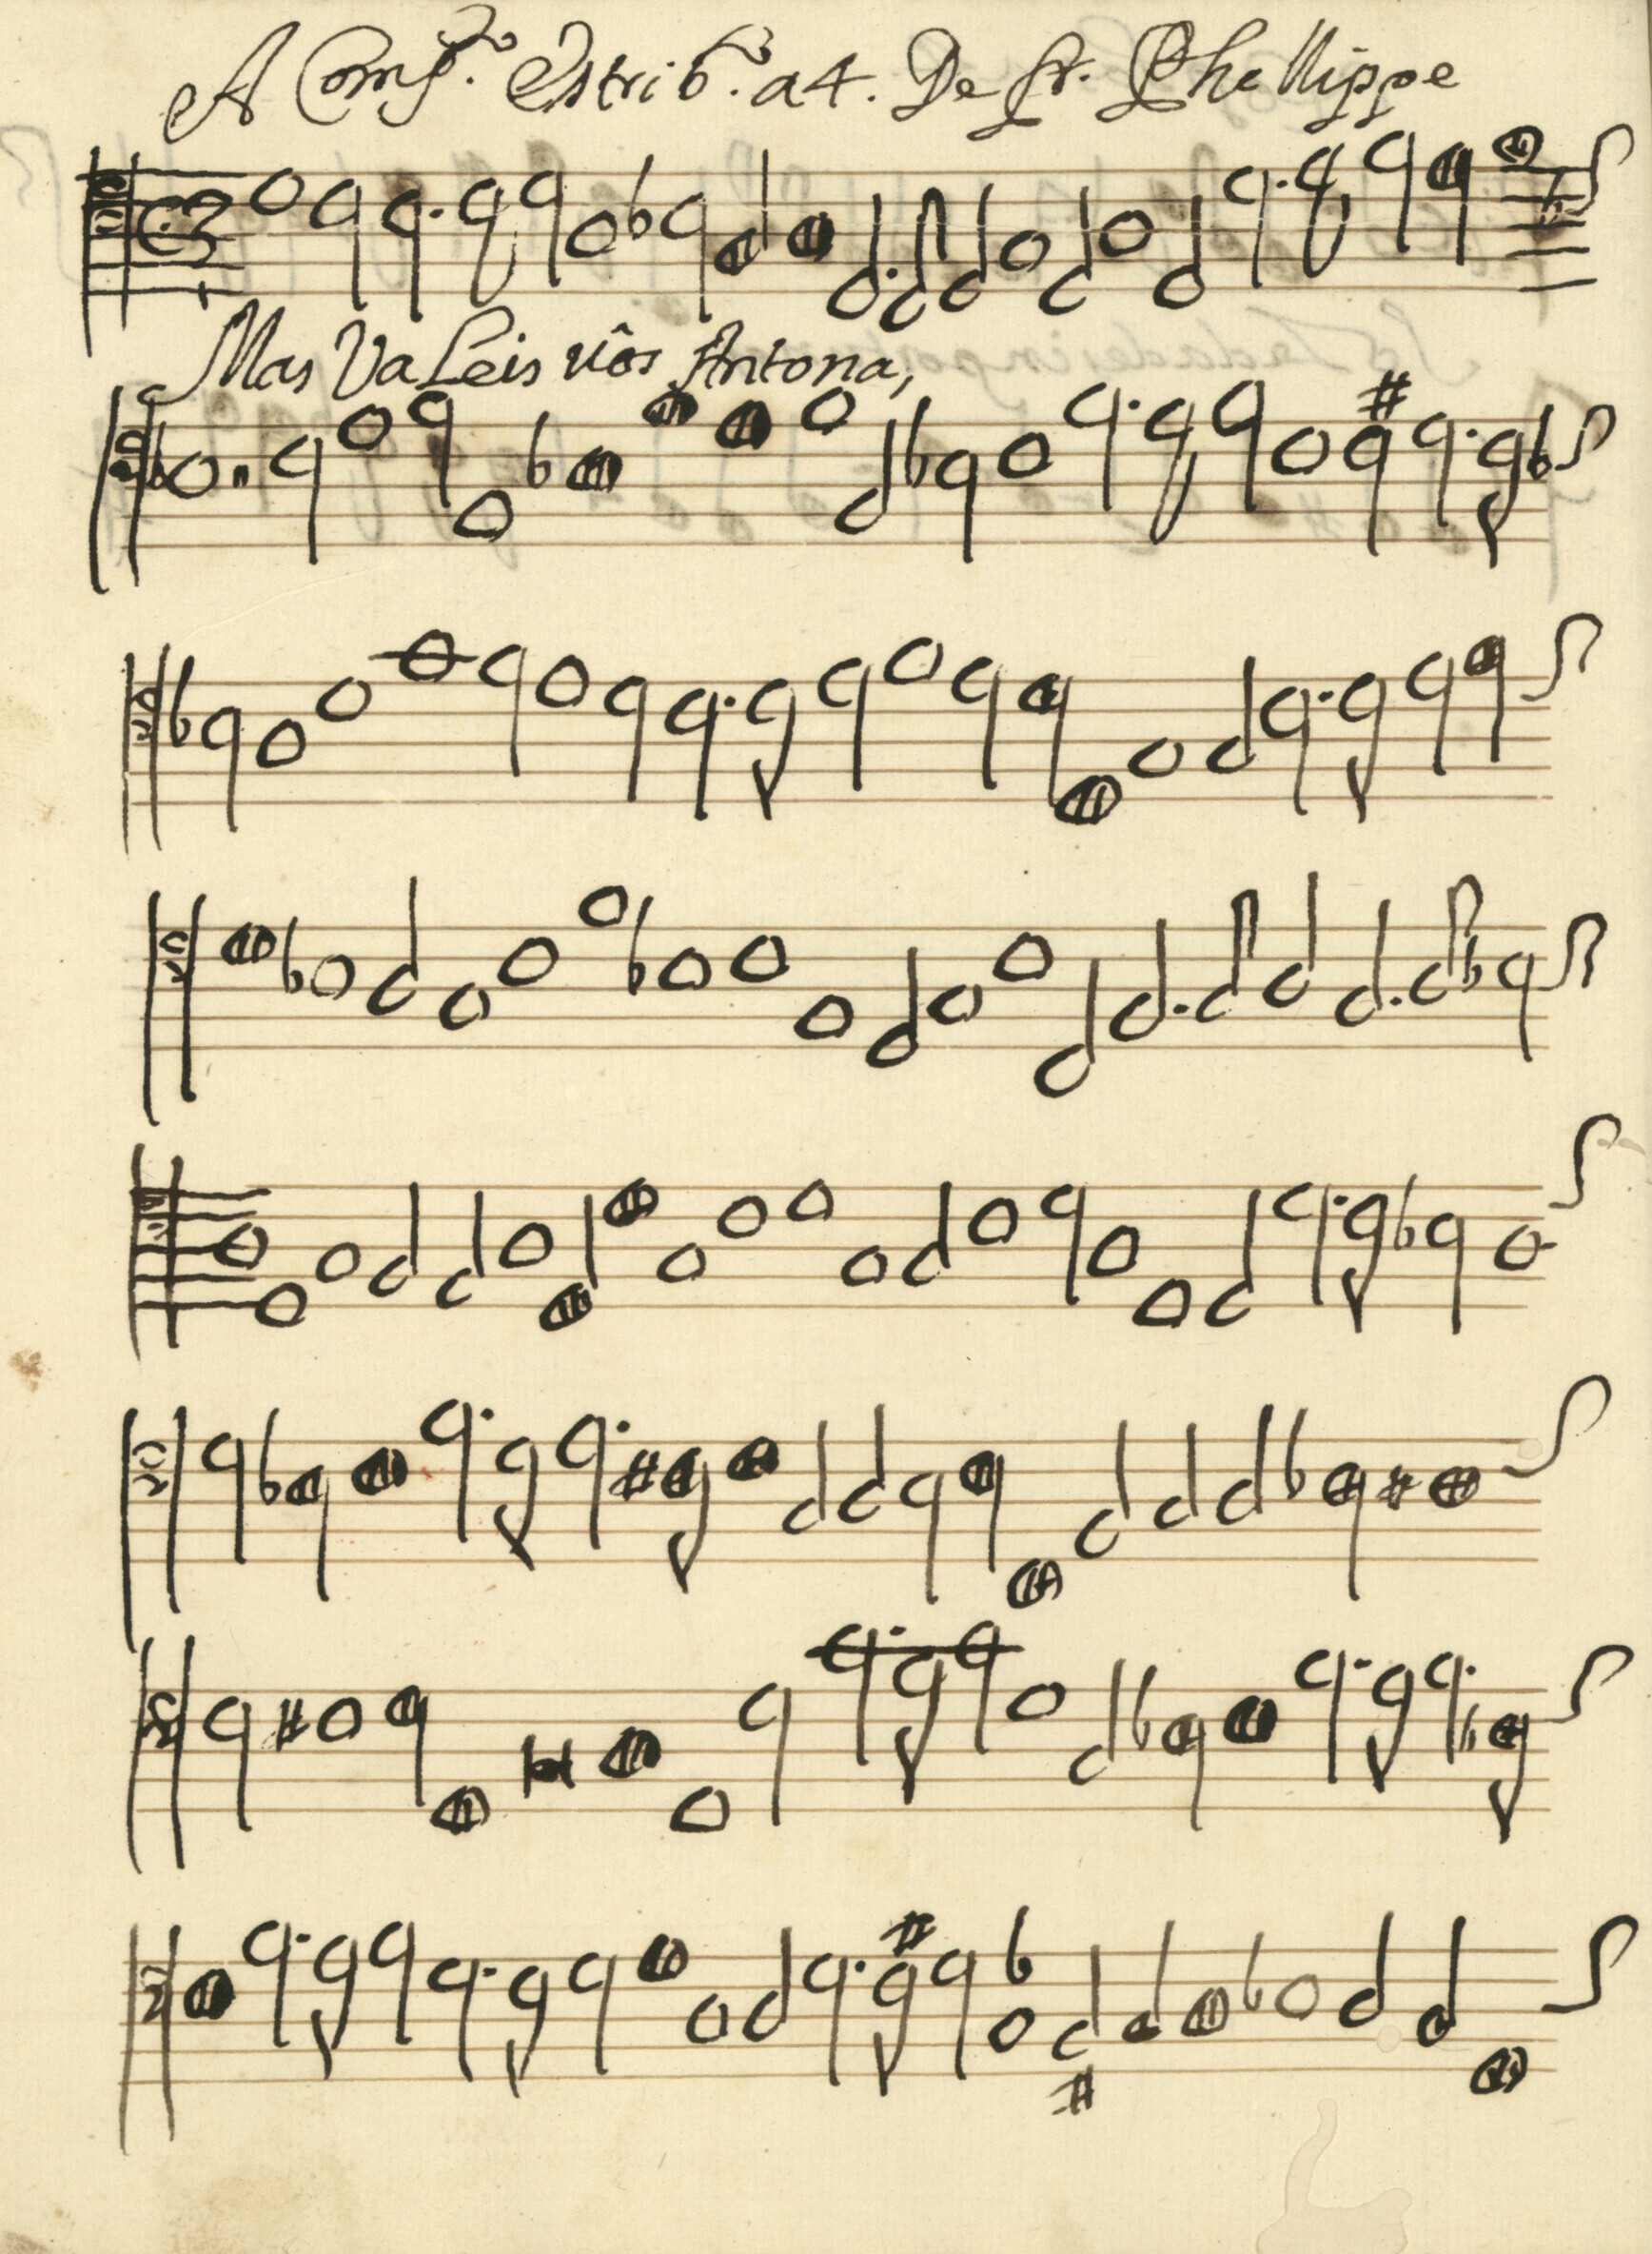 A Comp.to estrib.o a 4. De fr. Phellippe
Mas Valeis vôs Antona,